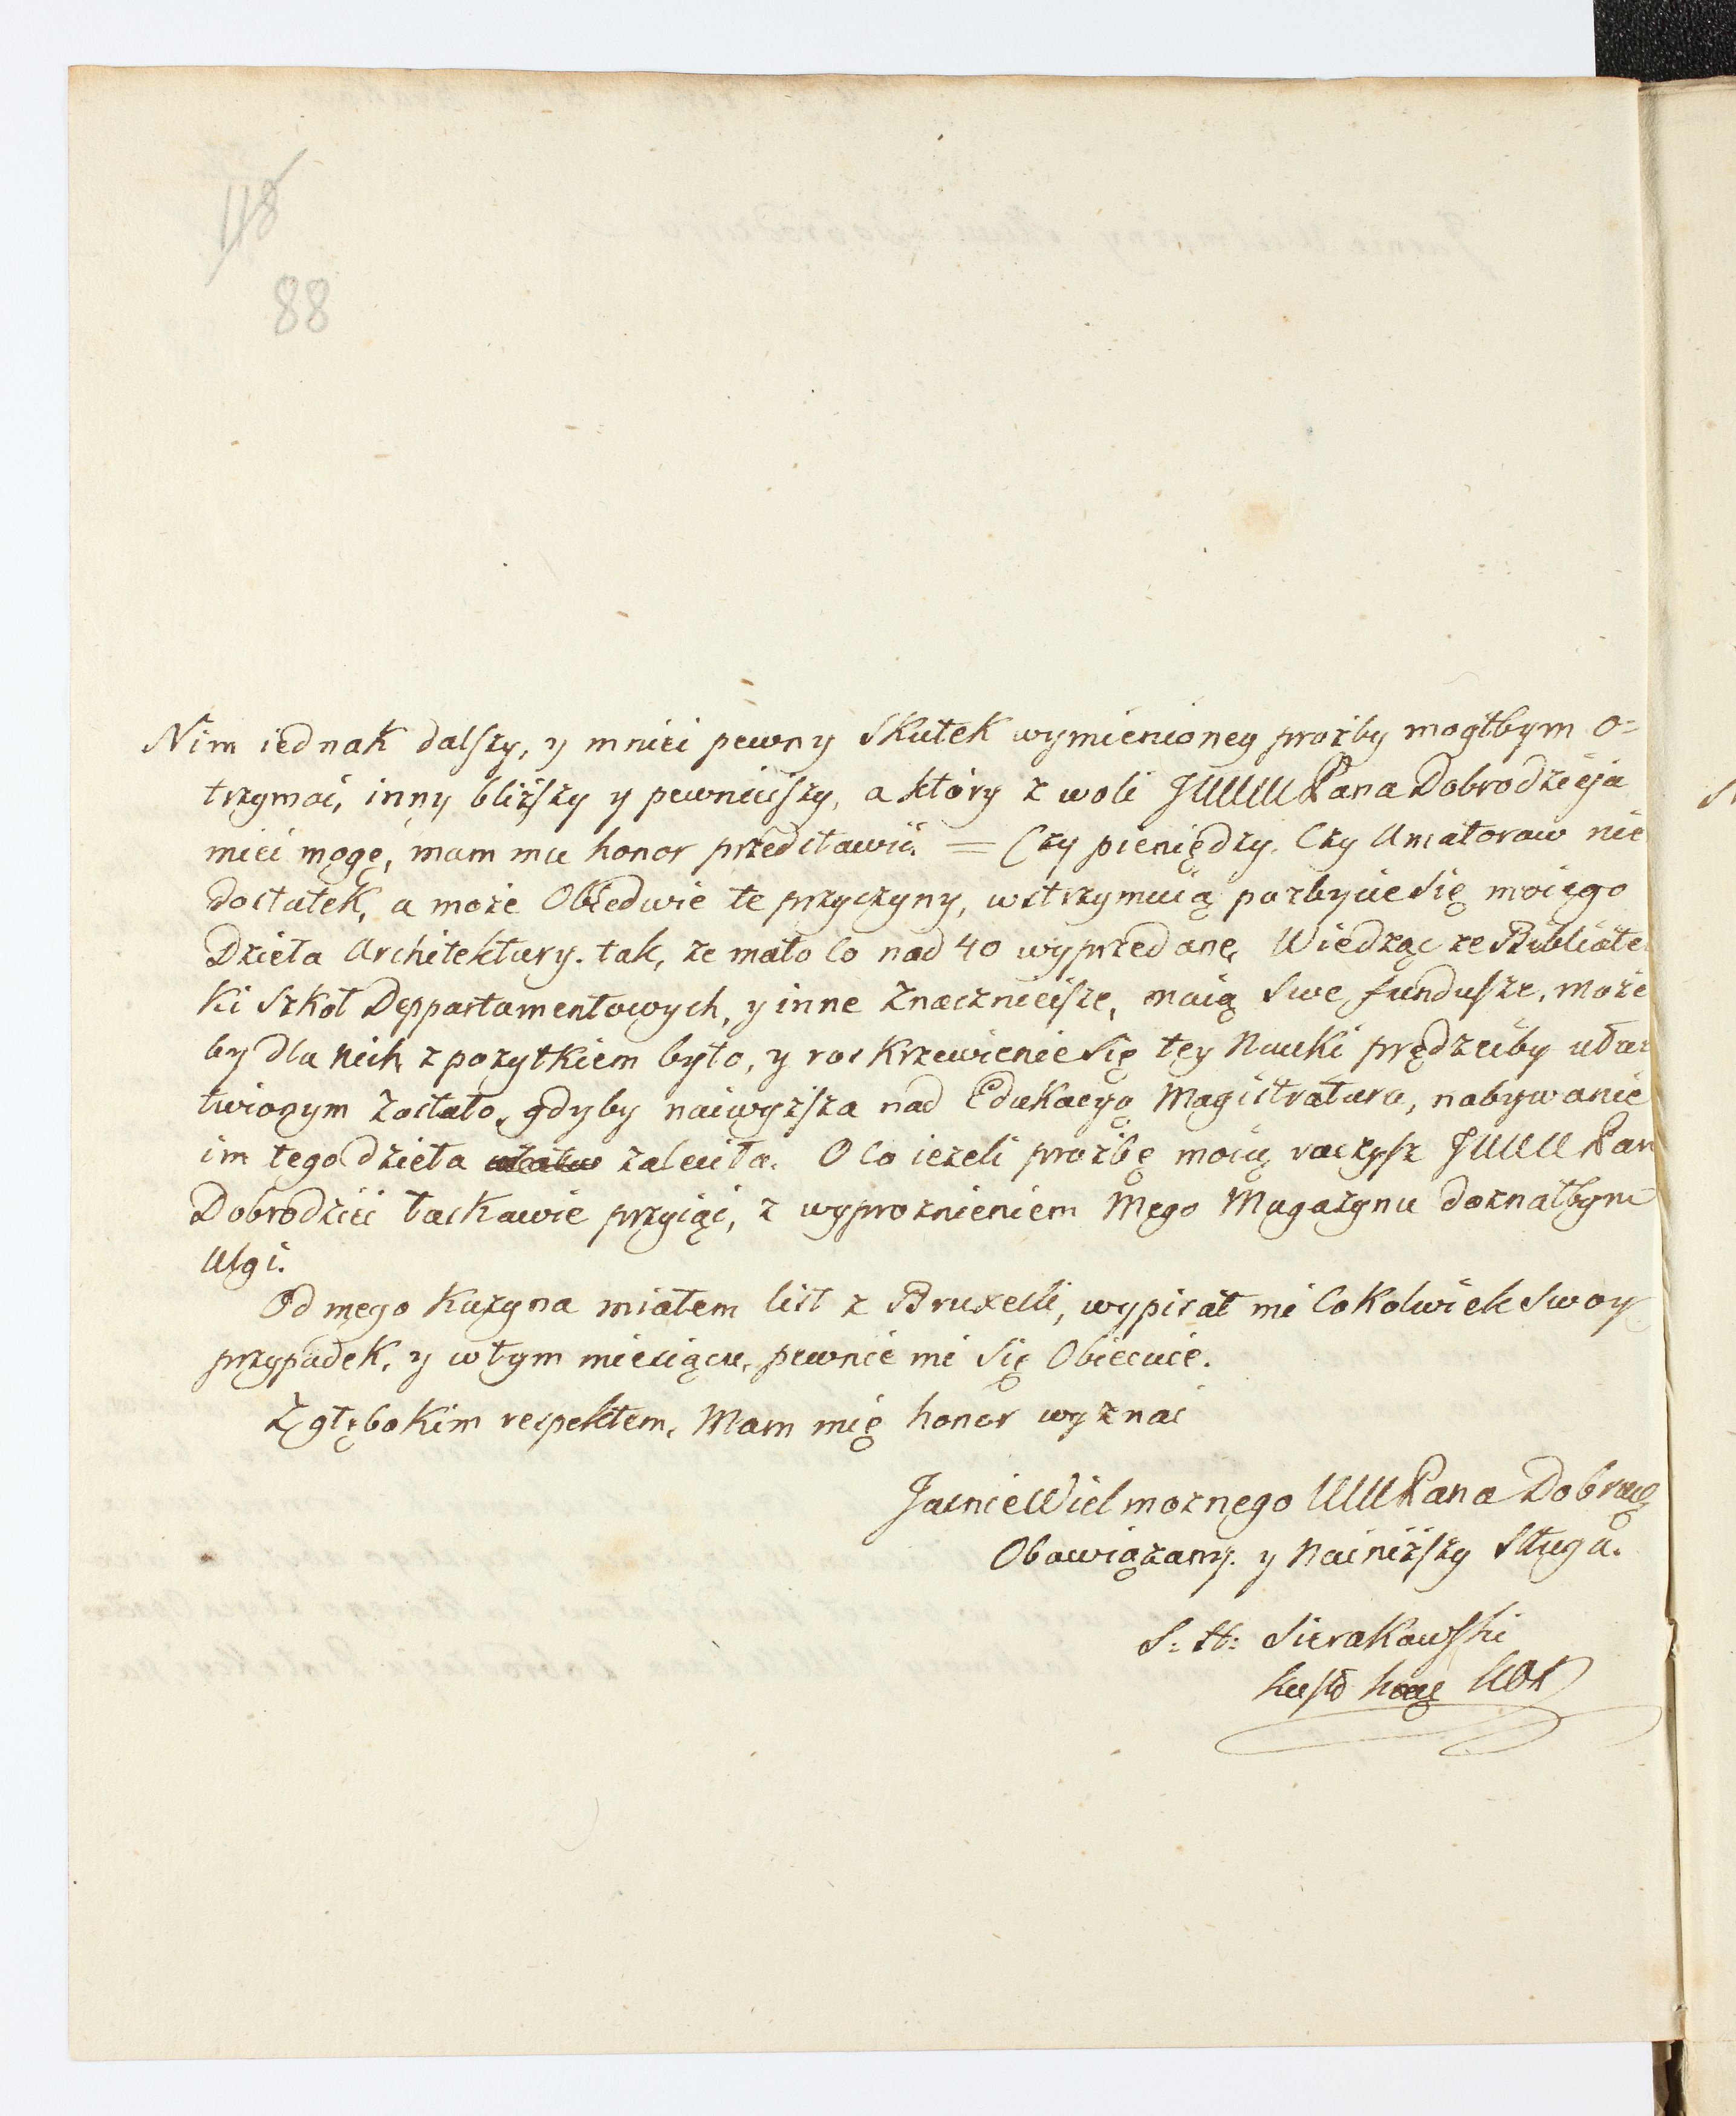 118
88
Nim iednak dalszy, y mniei pewny skutek wymienioney prozby mogłbym o=
trzymać, inny bliższy y pewnieiszy, a który z woli JWWW Pana Dobrodzieja
mieć mogę, mam mu honor przedstawić. = Czy pieniędzy, Czy Amatorow nie
dostatek, a może Obiedwie te przyczyny, wstrzymuią pozbycie się moiego
Dzieła Architektury. tak, że mało co nad 40 wyprzedane, Wiedząc ze Bibliote
ki Szkoł Deppartamentowych, y inne znacznieisze, maią swe fundusze, może
by dla nich z pożytkiem było, y roskrzewienie się tey Nauki prędzeiby uła
twionym zostało, gdyby naiwyższa nad Edukacyą Magistratura, nabywanie
im tego dzieła zaleciła. O co iezeli proźbę moię raczysz JWWW Pan
Dobrodziei łaskawie przyiąć, z wyprożnieniem Mego Magazynu doznałbym
Ulgi.
Od mego Kuzyna miałem list z Bruxelli, wypisał mi cokolwiek swoy
przypadek, y w tym miesiącu, pewnie mi się Obiecuie.
Z głębokim respektem, Mam mię honor wyznać
Jaśnie Wielmożnego WWW Pana Dobrodz
Obowiązany y Nainiższy Sługa.
S: H: Sierakowski